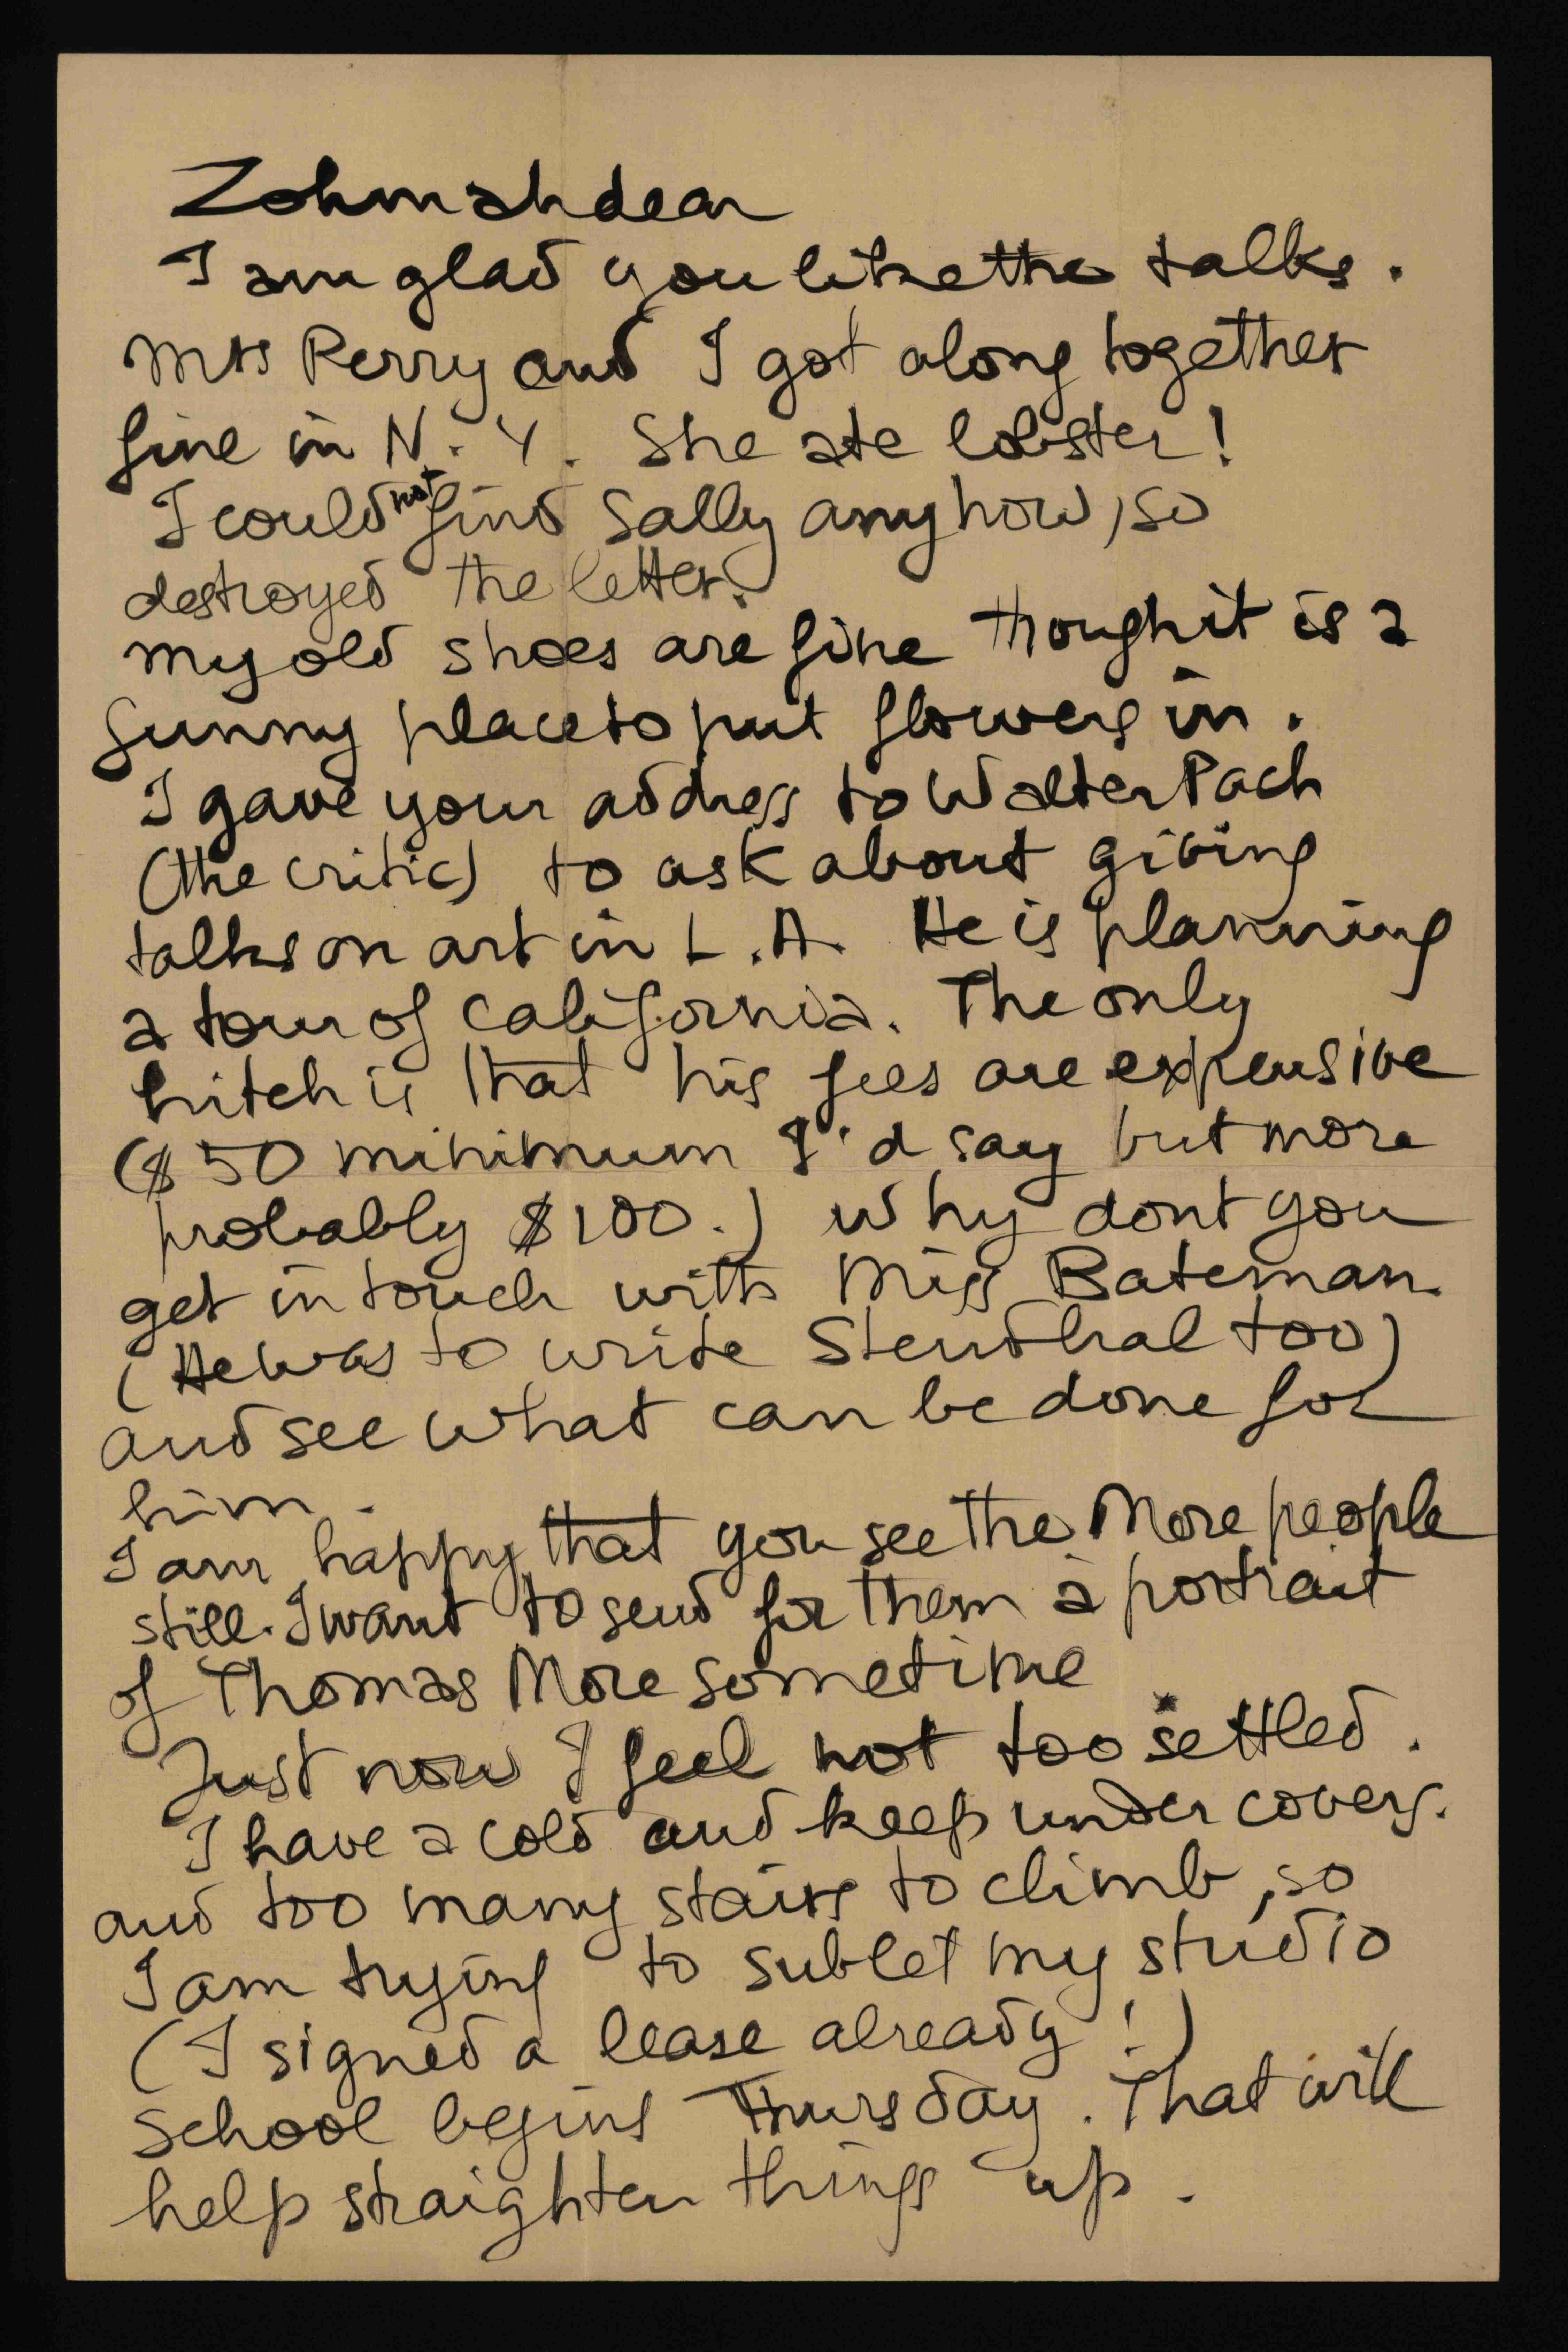 Zohmah dear
I am glad you like the talks.
Mrs Perry and I got along together
fine in N.Y. She ate lobster!
I could not find Sally anyhow, so
destroyed the letter.
My old shoes are fine though it is a
funny place to put flowers in.
I gave your address to Walter Pach
(the critic) to ask about giving
talks on art in L.A. He is planning
a tour of California. The only
hitch is that his fees are expensive
($50 minimum I'd say but more
probably $100.) Why dont you
get in touch with Miss Bateman.
(He was to write Stendhal too)
and see what can be done for
him.
I am happy that you see the More people
still. I want to send for them a portrait
of Thomas More sometime
Just now I feel not too settled.
I have a cold and keep under covers.
and too many stairs to climb, so
I am trying to sublet my studio
(I signed a lease already!)
School begins Thursday. That will
help straighten things up.